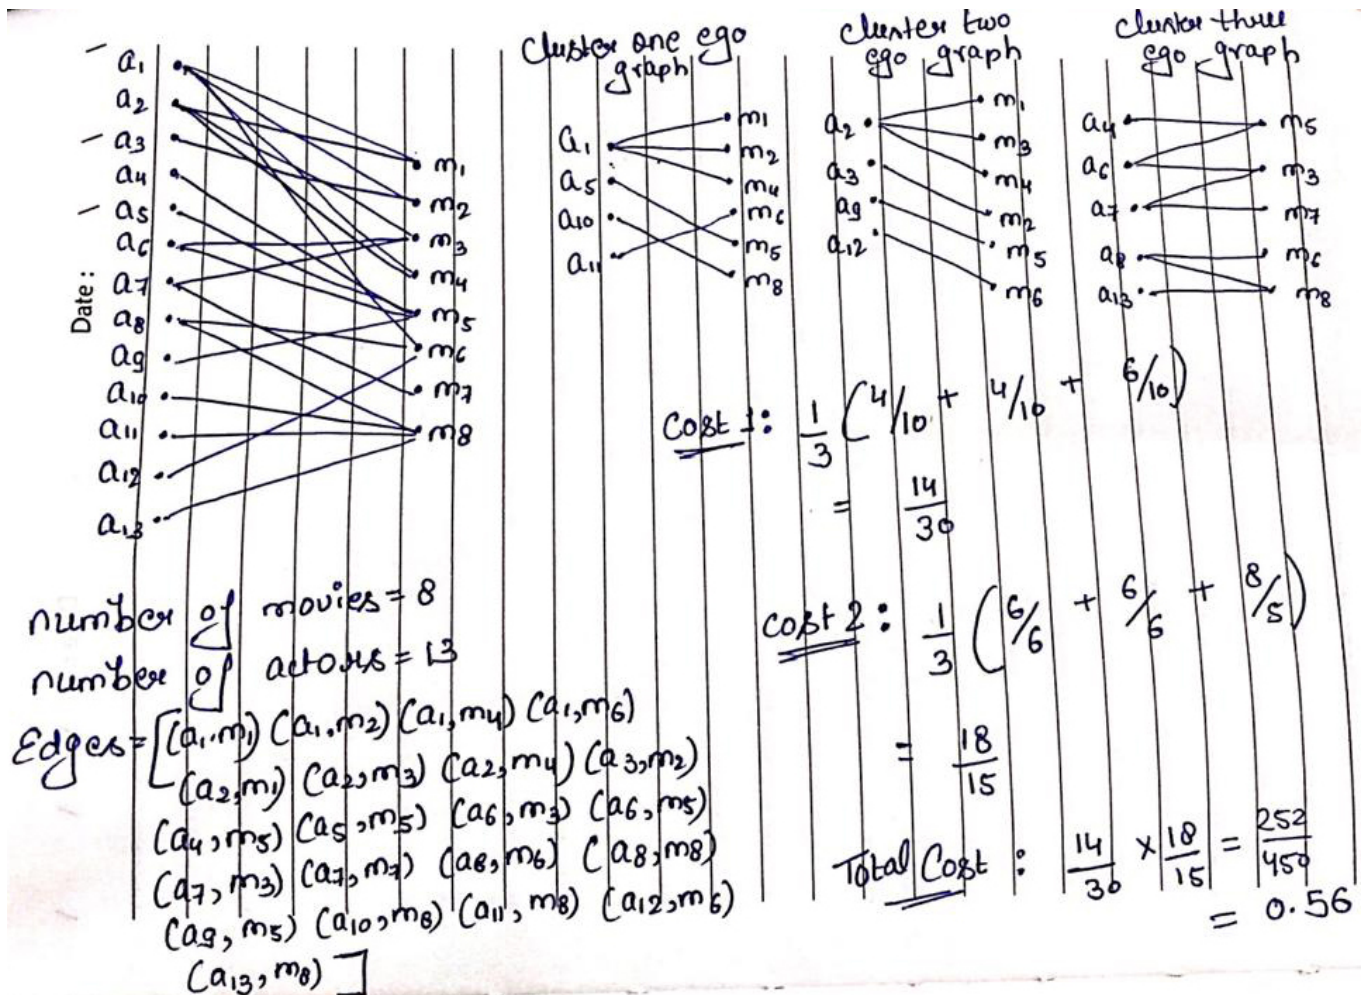 Date:
a1
a2
a3
a4
a5
a6
a7
a8
a9
a10
a11
a12
a13
m1
m2
m3
m4
m5
m6
m7
m8
cluster one ego
graph
a1
a5
a10
a11
m1
m2
m4
m6
m5
m8
cluster two
ego graph
a2
a3
a9
a12
m1
m3
m4
m2
m5
m6
cluster three
ego graph
a4
a6
a7
a8
a13
m5
m3
m7
m6
m8
Cost 1: 1/3 (4/10 + 4/10 + 6/10)
= 14/30
cost 2: 1/3 (6/6 + 6/6 + 8/5)
= 18/15
Total Cost: 14/30 × 18/15 = 252/450
= 0.56
number of movies = 8
number of actors = 13
Edges = [(a1,m1) (a1,m2) (a1,m4) (a1,m6)
(a2,m1) (a2,m3) (a2,m4) (a3,m2)
(a4,m5) (a5,m5) (a6,m3) (a6,m5)
(a7,m3) (a7,m7) (a8,m6) (a8,m8)
(a9,m5) (a10,m8) (a11,m8) (a12,m6)
(a13,m8)]